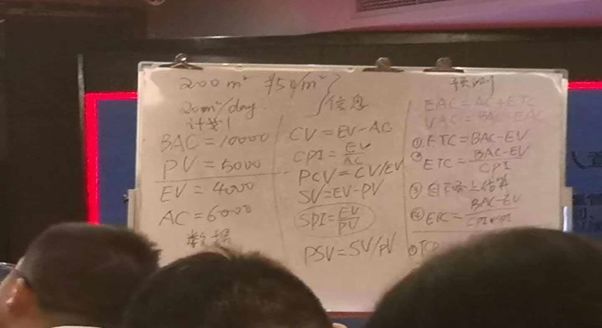 200m² 50/m²
20m²/day
计划
BAC=10000
PV=5000
EV=4000
AC=6000
数据
信息
CV=EV-AC
CPI=EV/AC
PCV=CV/EV
SV=EV-PV
SPI=EV/PV
PSV=SV/PV
预测
EAC=AC+ETC
VAC=BAC-EAC
①ETC=BAC-EV
②ETC=BAC-EV/CPI
③自下而上估算
④ETC=BAC-EV/